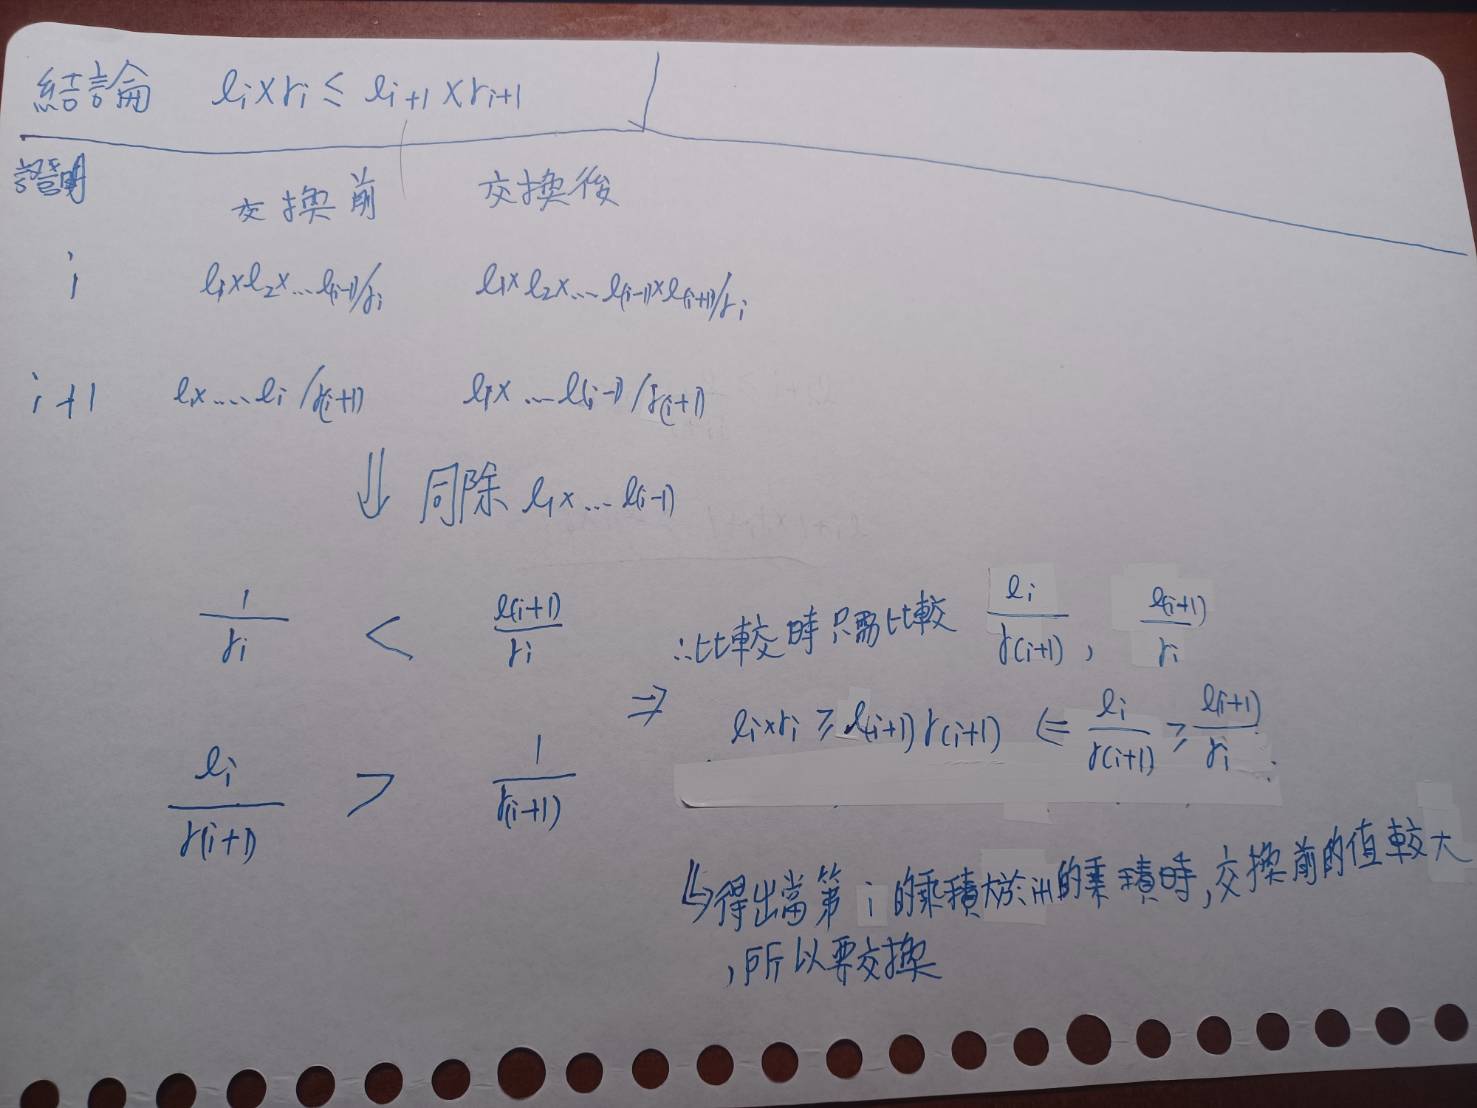 結論 lixri ≤ li+1 xri+1
證明
交換前 交換後
i l1xl2x...l(i-1)/ri l1xl2x...l(i-1)xl(i+1)/ri
i+1 l1x....li/r(i+1) l1x...l(i-1)/r(i+1)
⇓ 同除 l1x...l(i-1)
1/ri < l(i+1)/ri
li/r(i+1) > 1/r(i+1)
⇒ ∴比較時只需比較 li/r(i+1), l(i+1)/ri
lixri ≥ l(i+1)r(i+1) ⇐ li/r(i+1) ≥ l(i+1)/ri
↳得出當第i的乘積大於i+1的乘積時,交換前的值較大
,所以要交換